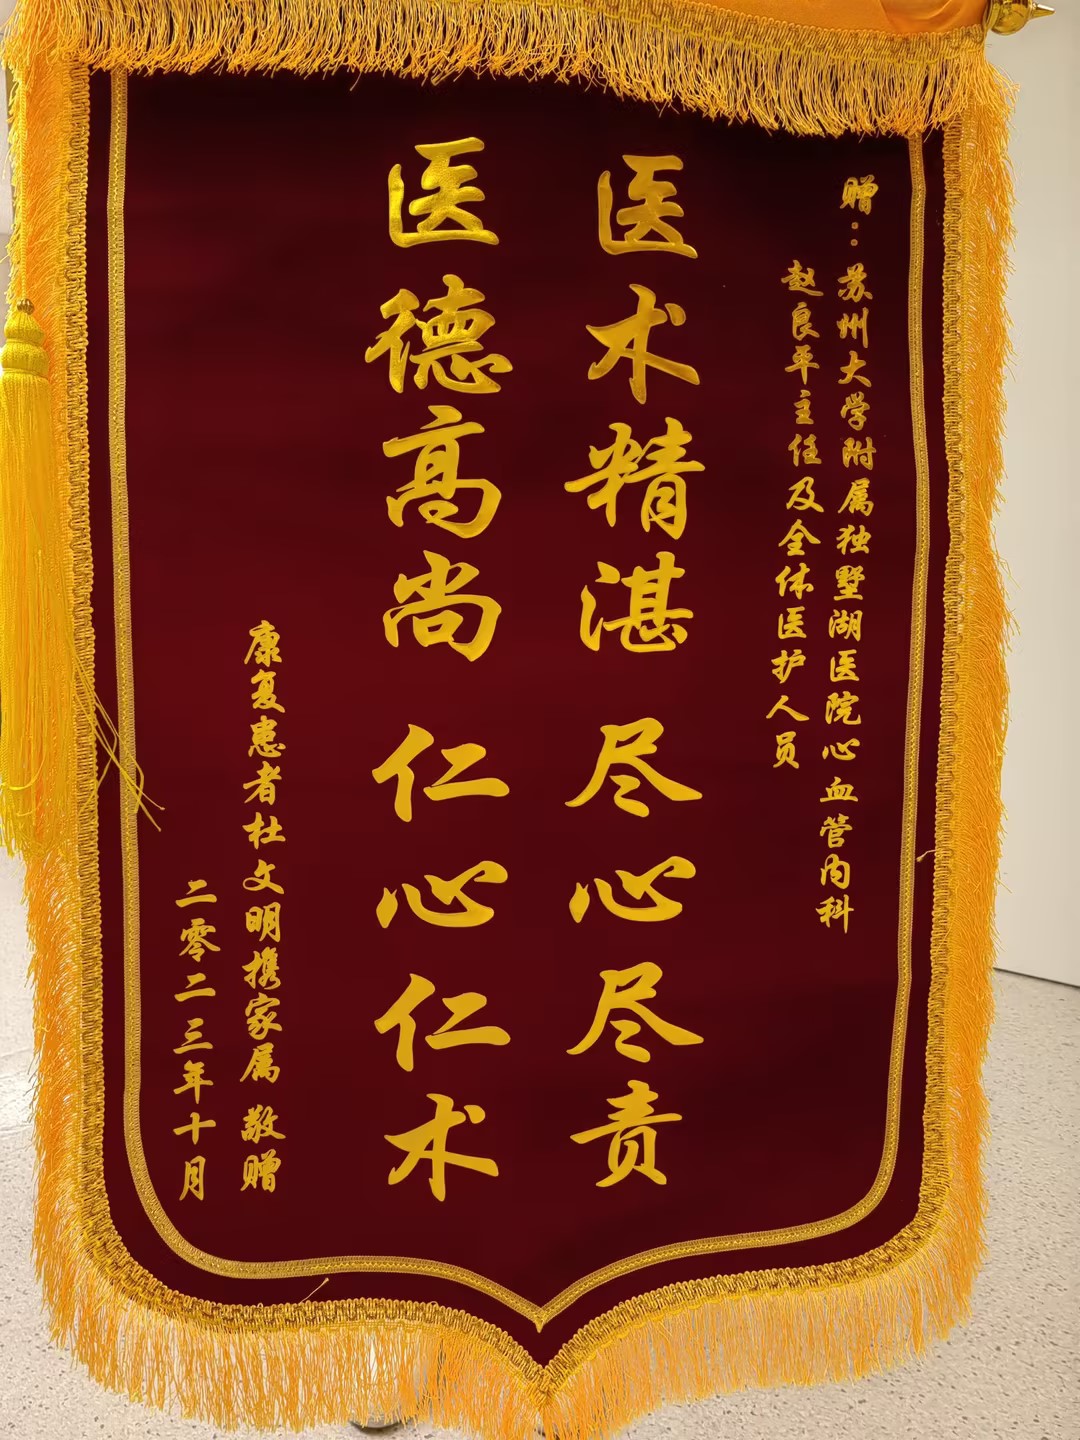 赠：苏州大学附属独墅湖医院心血管内科
赵良平主任及全体医护人员
医术精湛 尽心尽责
医德高尚 仁心仁术
康复患者杜文明携家属 敬赠
二零二三年十月